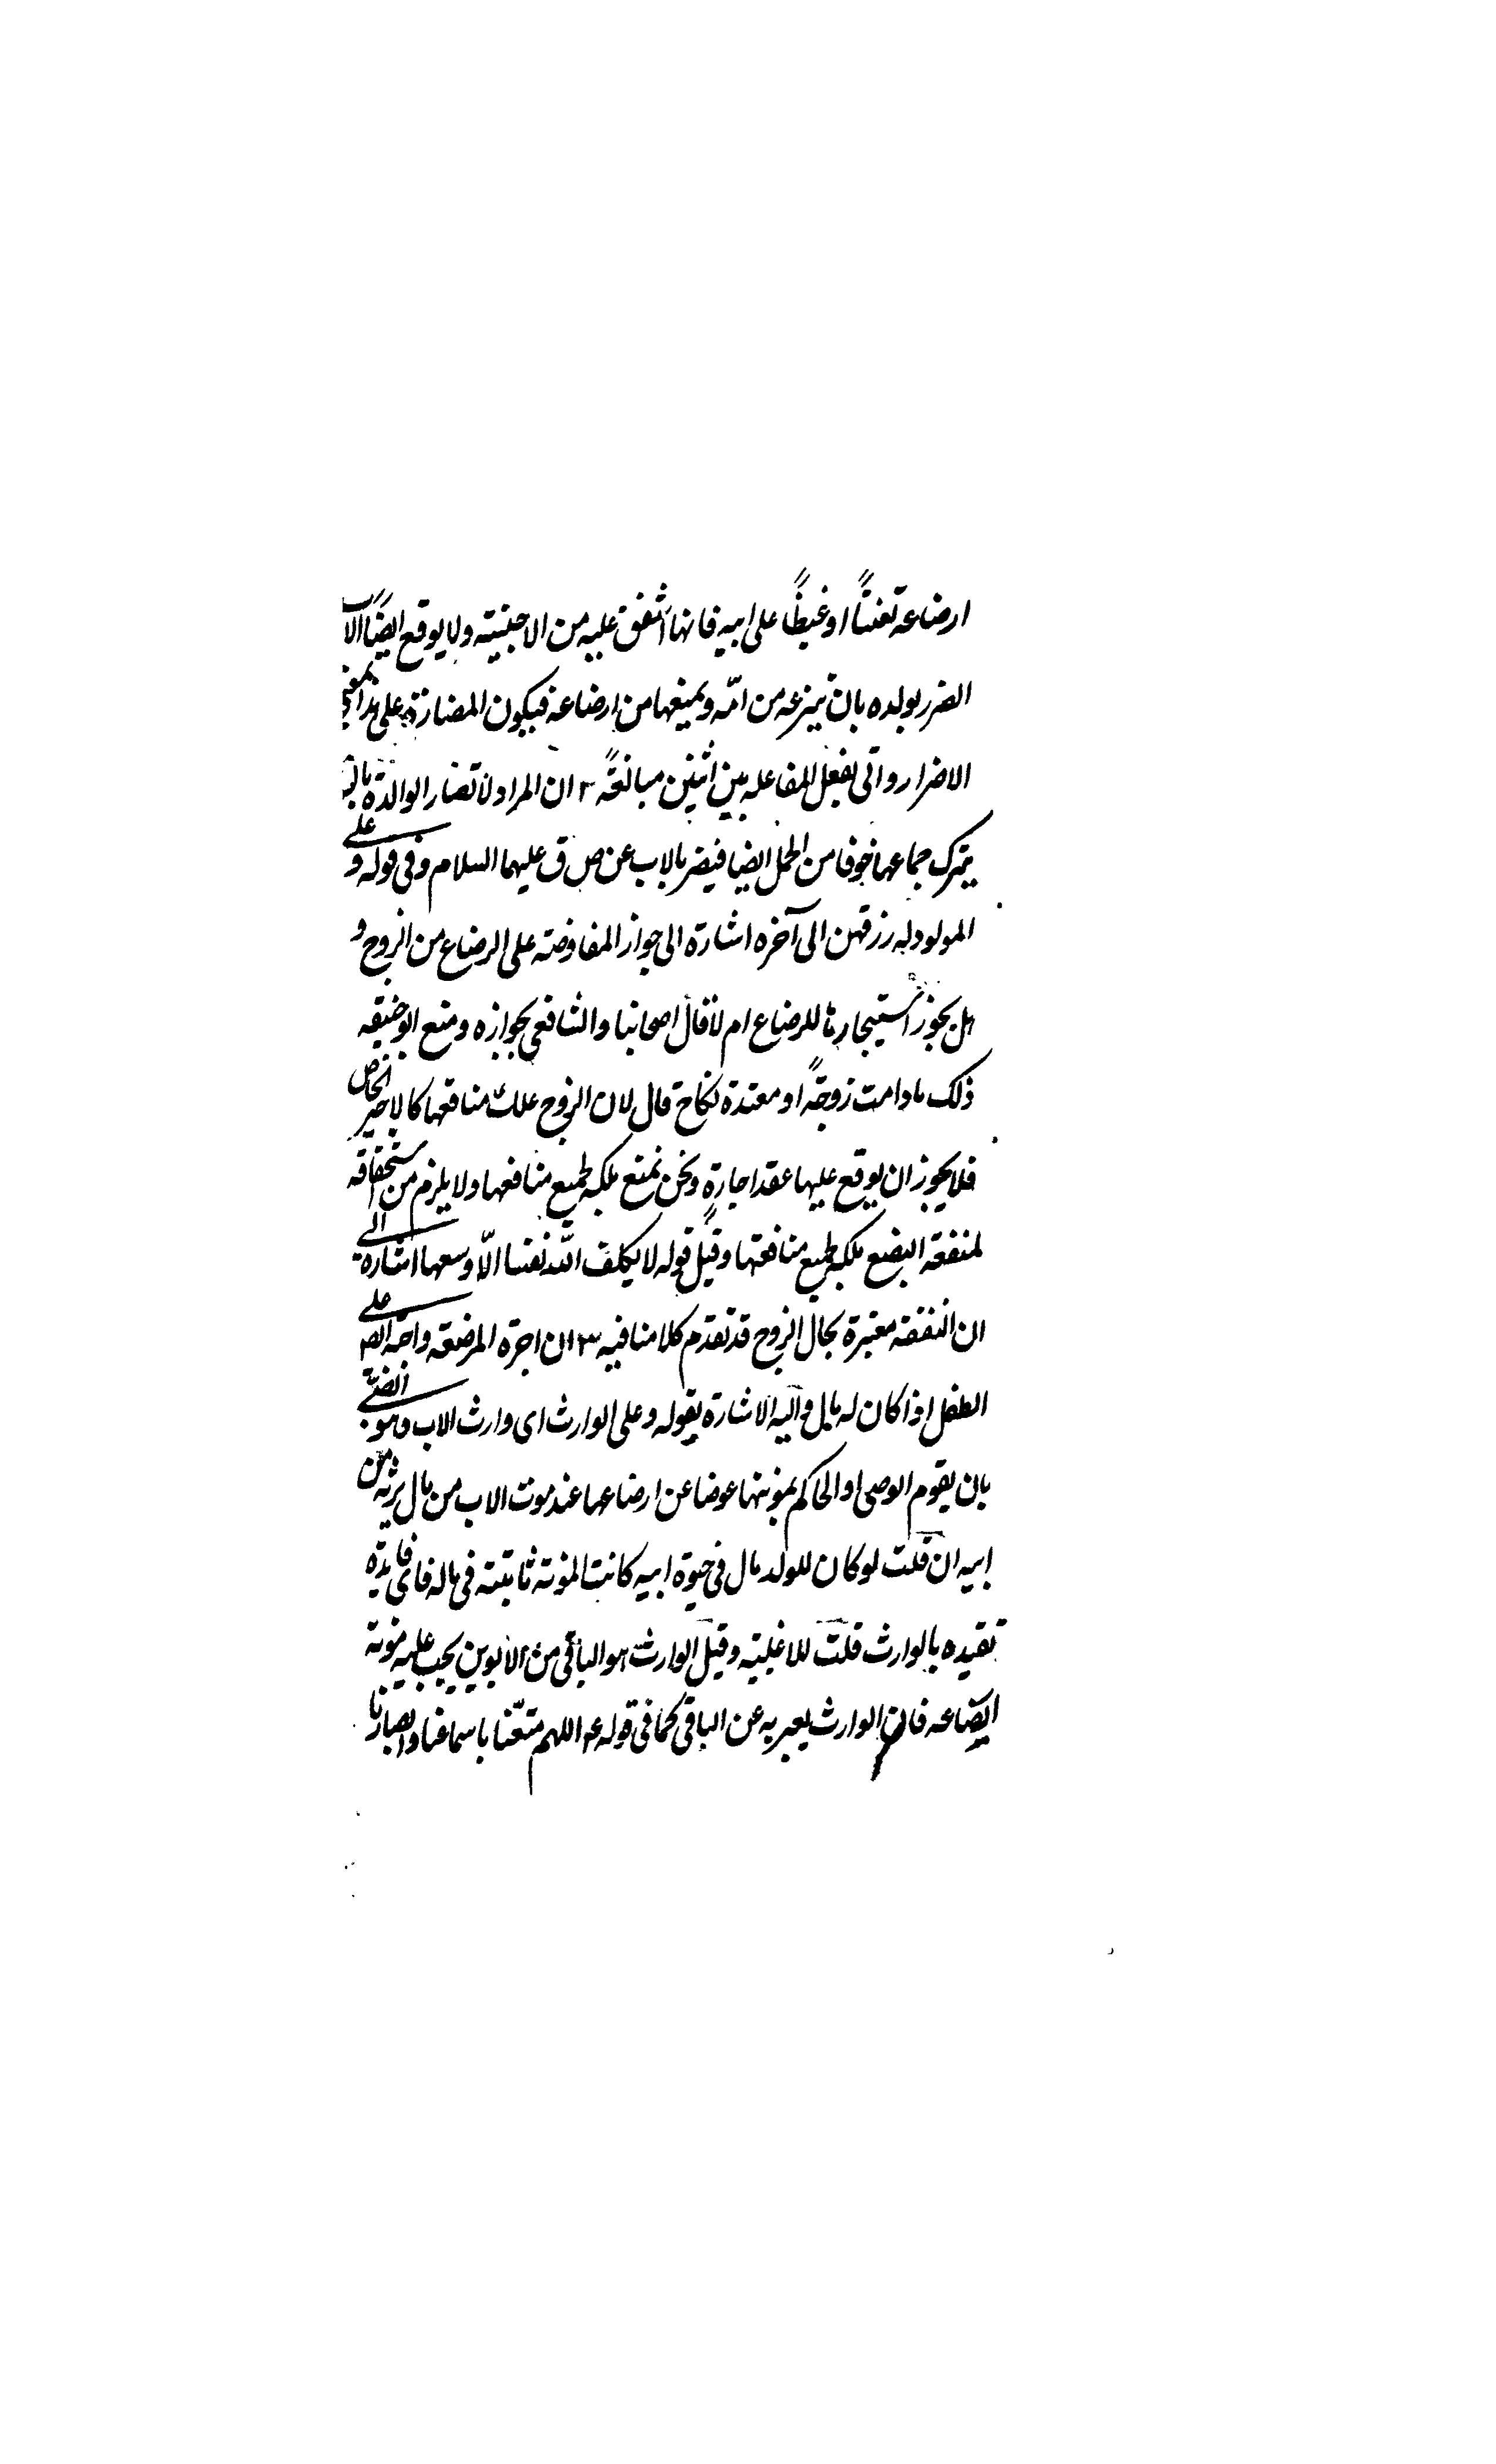 ارضاعه تعنتًا او غيظًا على ابيه فانها اشفق عليه من الاجنبية ولا يوقع ايضًا الاب
الضرر بولده بان ينزعه من امّه ويمنعها من ارضاعه فيكون المضارّة على هذا بمعنى
الاضرار واتى بفعل المفاعله بين اثنين مبالغةً ٢ ان المراد لا تضار الوالدة بان
يترك جماعها خوفا من الحمل ايضا فيضر بالاب عن ص ق عليهما السلام وفى قوله وعلى
المولود له رزقهن الى آخره اشارة الى جواز المفاوضة على الرضاع من الزوج و
هل يجوز استيجارها للرضاع ام لا قال اصحابنا والشافعى بجوازه ومنع ابو حنيفه
ذلك ما دامت زوجةً او معتدة نكاح قال لان الزوج ملك منافعها كالاجير الخاص
فلا يجوز ان يوقع عليها عقد اجارةٍ ونحن نمنع ملكه لجميع منافعها ولا يلزم من استحقاقه
لمنفعة البضع ملكه لجميع منافعها وقيل قوله لا يكلف الله نفسا الّا وسعها اشارة الى
ان النفقة معتبرة بحال الزوج قد تقدم كلامنا فيه ٣ ان اجرة المرضعة واجبة ايضا على
الطفل اذا كان له مال واليه الاشارة بقوله وعلى الوارث اى وارث الاب وهو الصبى
بان يقوم الوصى او الحاكم بمؤنتها عوضا عن ارضاعها عند موت الاب من مال يرثه من
ابيه ان قلت لو كان للولد مال فى حيوة ابيه كانت المؤنة ثابتة فى ماله فاى فايدة
تقيده بالوارث قلت للاغلبية وقيل الوارث هو الباقى من الابوين يجب عليه مؤنة
الرضاعه فان الوارث يعبر به عن الباقى كما فى قوله ع اللهم متّعنا باسماعنا وابصارنا